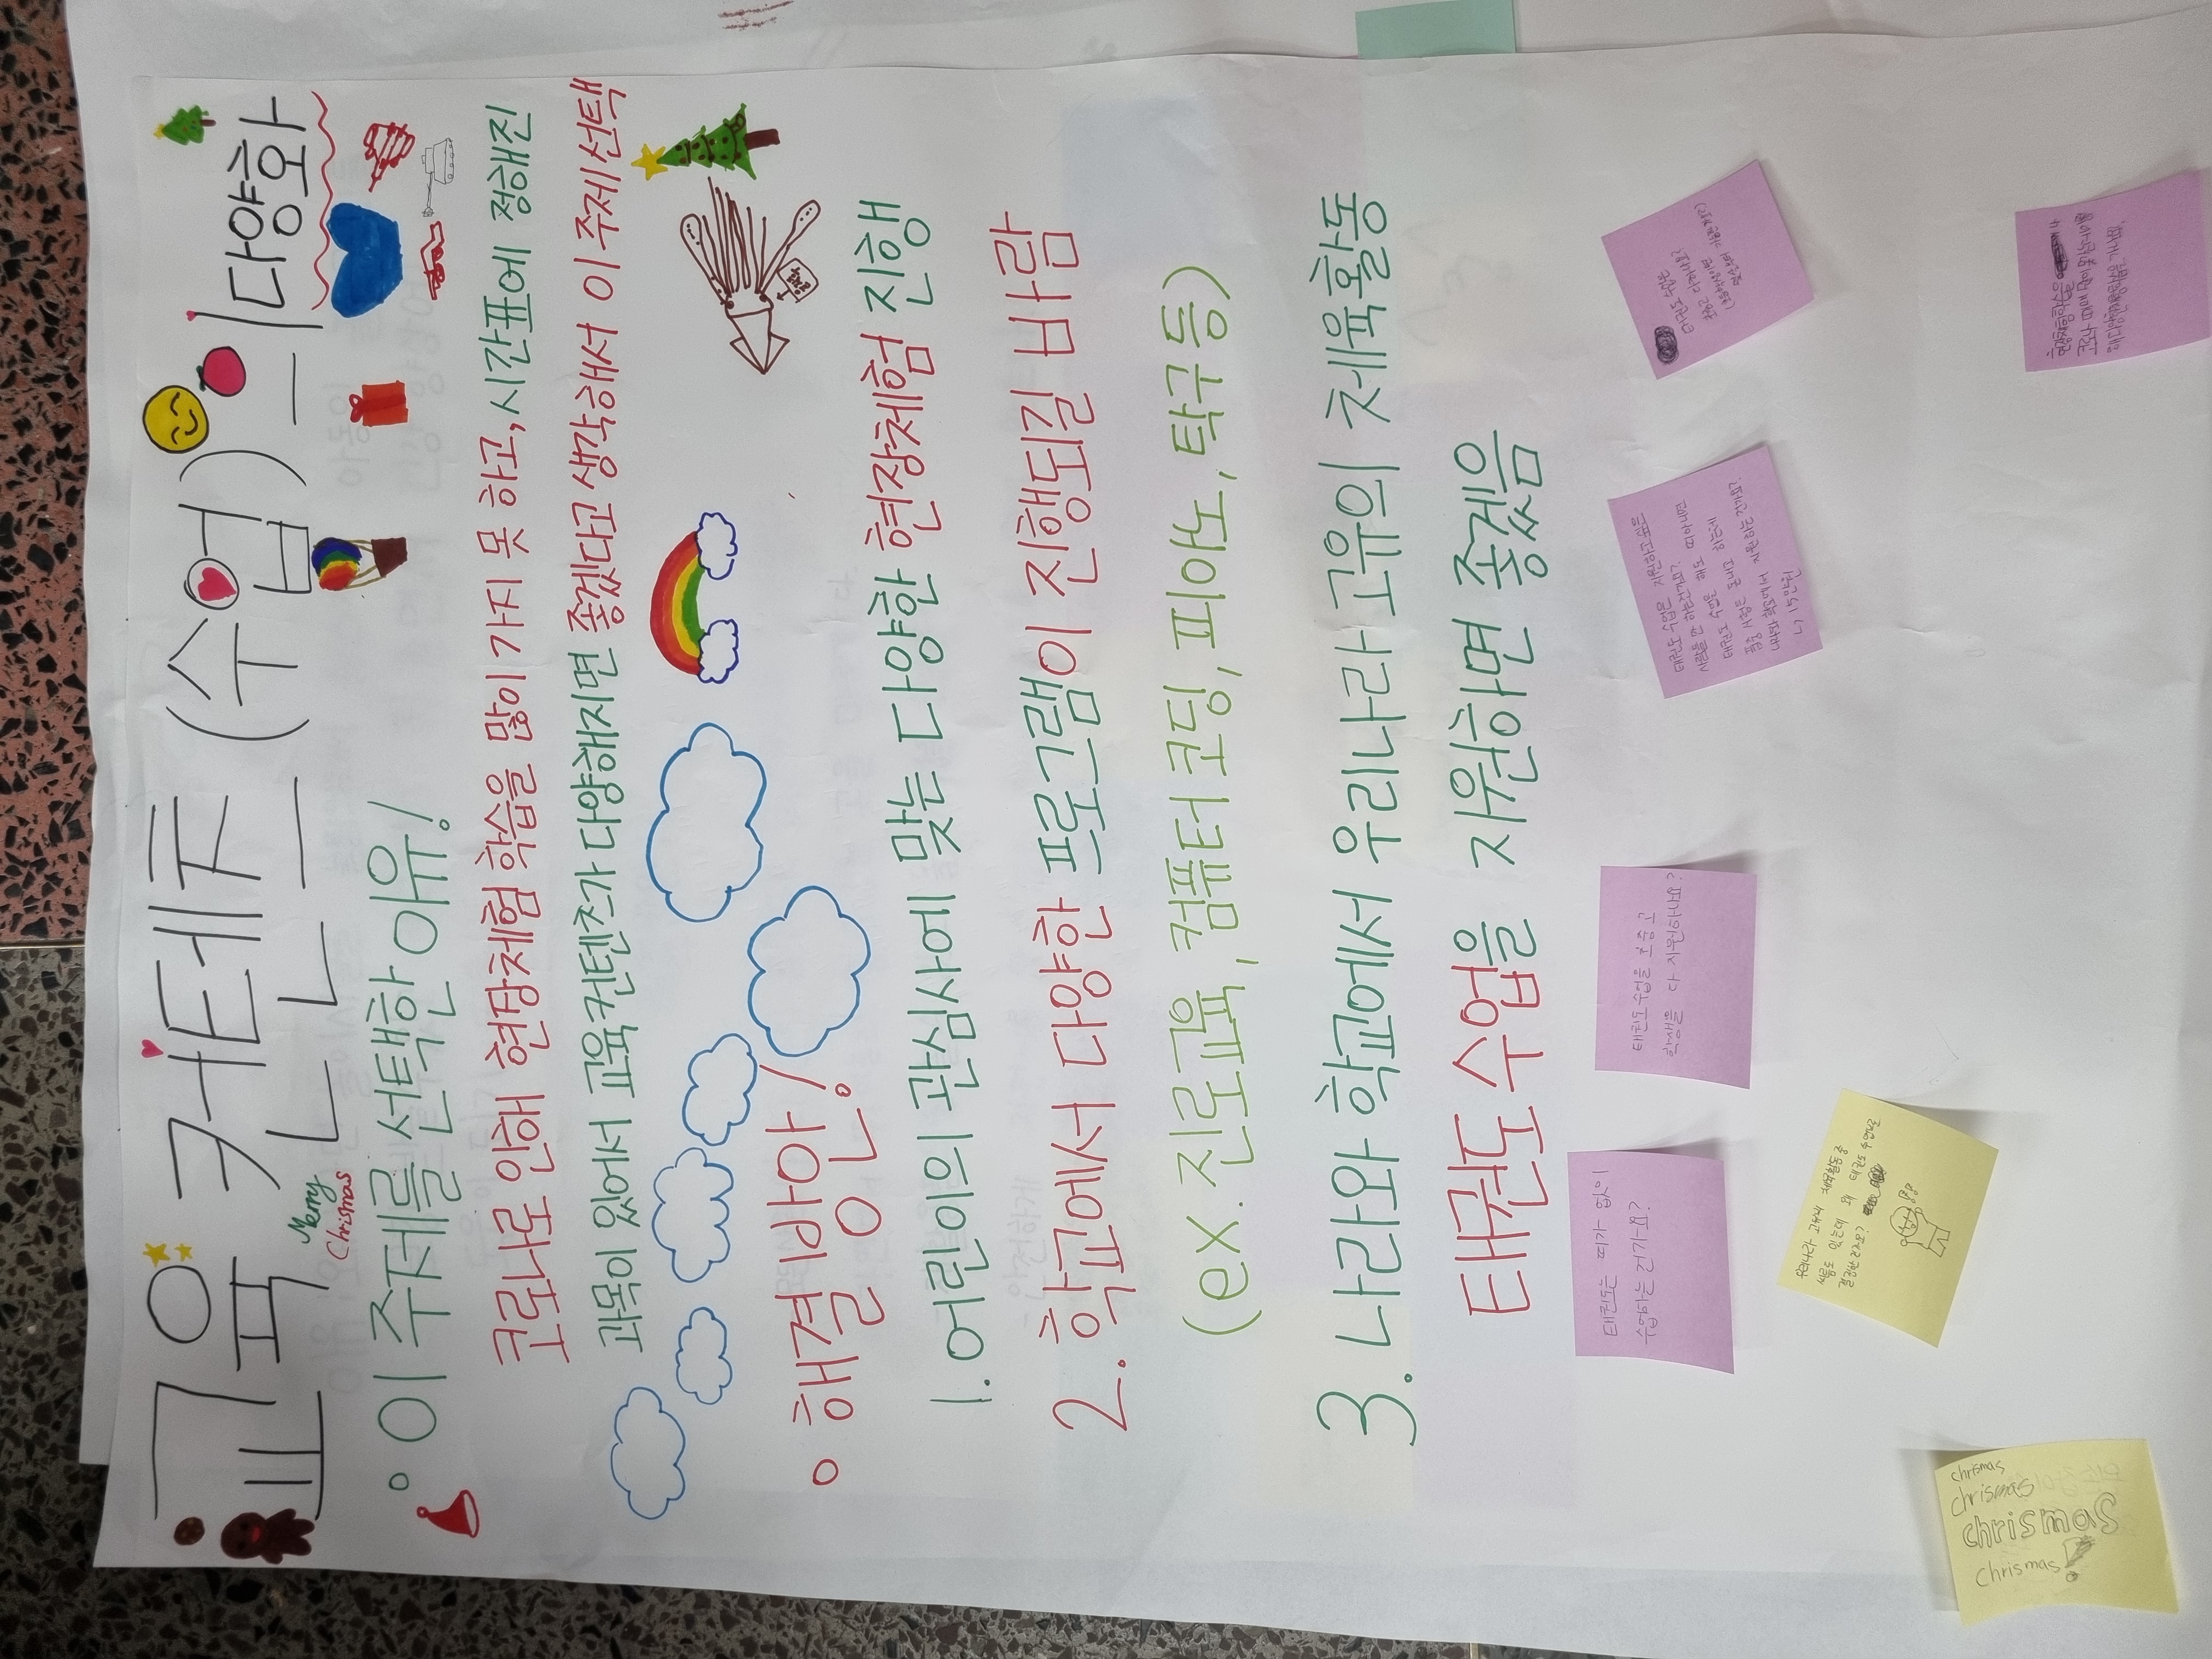 교육 컨텐츠 (수업)의 다양화
Merry
Chrismas
이 주제를 선택한 이유!
코로나로 인해 현담체험 학습을 많이 가지 못 하고, 시간표에 정해진
과목이 있어서 교육컨텐츠가 다양해지면 좋겠다고 생각해서 이 주제선택
해결방안!
1. 어린이의 관심사에 맞는 다양한 현장체험 진행
2. 학교에서 다양한 프로그램이 진행되길 바람
(ex. 진로교육, 컴퓨터 코딩, 피아노, 탁구 등)
3. 나라와 학교에서 우리나라 고유의 체육활동
태권도 수업을 지원하면 좋겠음
태권도는 띠가 없이
수업하는 건가요?
태권도 수업을 초중고
학생을 다 지원하나요?
태권도 수업은 지원하고 싶은
사람들만 하는건가요?
태권도 수업을 해도 띠이나면
품증 시험은 돈내고 하는데
나라와 학교에서 지원하는건가요?
15만원
태권도 수업은
우리나라 고유의 체육활동 중
씨름도 있는데 왜 태권도 수업으로
결정한 건지요?
chrismas
chrismas
chrismas
chrismas!